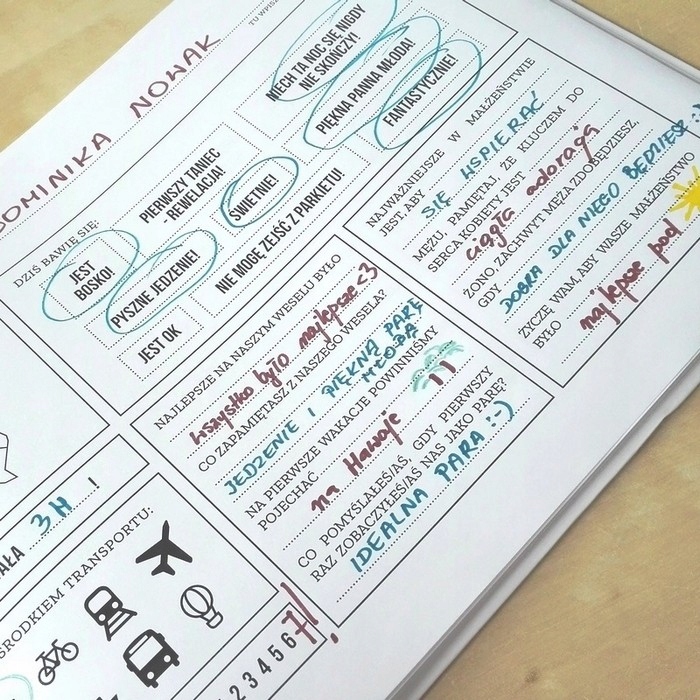 TU WPISZ
DOMINIKA NOWAK
DZIŚ BAWIĘ SIĘ:
JEST BOSKO!
PIERWSZY TANIEC
- REWELACJA!
NIECH TA NOC SIĘ NIGDY
NIE SKOŃCZY!
PYSZNE JEDZENIE!
ŚWIETNE!
PIĘKNA PANNA MŁODA!
JEST OK
NIE MOGĘ ZEJŚĆ Z PARKIETU!
FANTASTYCZNIE!
NAJLEPSZE NA NASZYM WESELU BYŁO
wszystko było najlepsze <3
CO ZAPAMIĘTASZ Z NASZEGO WESELA?
JEDZENIE I PIĘKNĄ PARĘ
MŁODĄ
NA PIERWSZE WAKACJE POWINNIŚMY
POJECHAĆ na Hawaje
CO POMYŚLAŁEŚ/AŚ, GDY PIERWSZY
RAZ ZOBACZYŁEŚ/AŚ NAS JAKO PARĘ?
IDEALNA PARA :-)
NAJWAŻNIEJSZE W MAŁŻEŃSTWIE
JEST, ABY SIĘ WSPIERAĆ
MĘŻU, PAMIĘTAJ, ŻE KLUCZEM DO
SERCA KOBIETY JEST ciągła adoracja
ŻONO, ZACHWYT MĘŻA ZDOBĘDZIESZ,
GDY DOBRA DLA NIEGO BĘDZIESZ :)
ŻYCZĘ WAM, ABY WASZE MAŁŻEŃSTWO
BYŁO najlepsze pod
AŁA 3H !
ŚRODKIEM TRANSPORTU:
2 3 4 5 6 7!